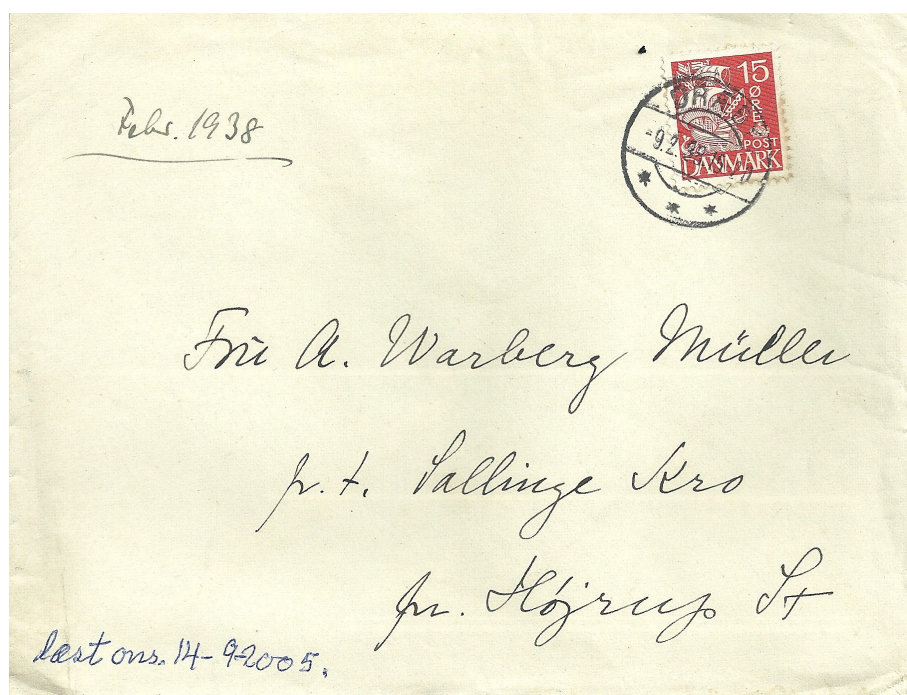 Febr. 1938
15
ØRE
POST
DANMARK
-9.2.
Fru A. Warberg Müller
p.t. Sallinge Kro
pr. Højrup St
læst ons. 14-9-2005.